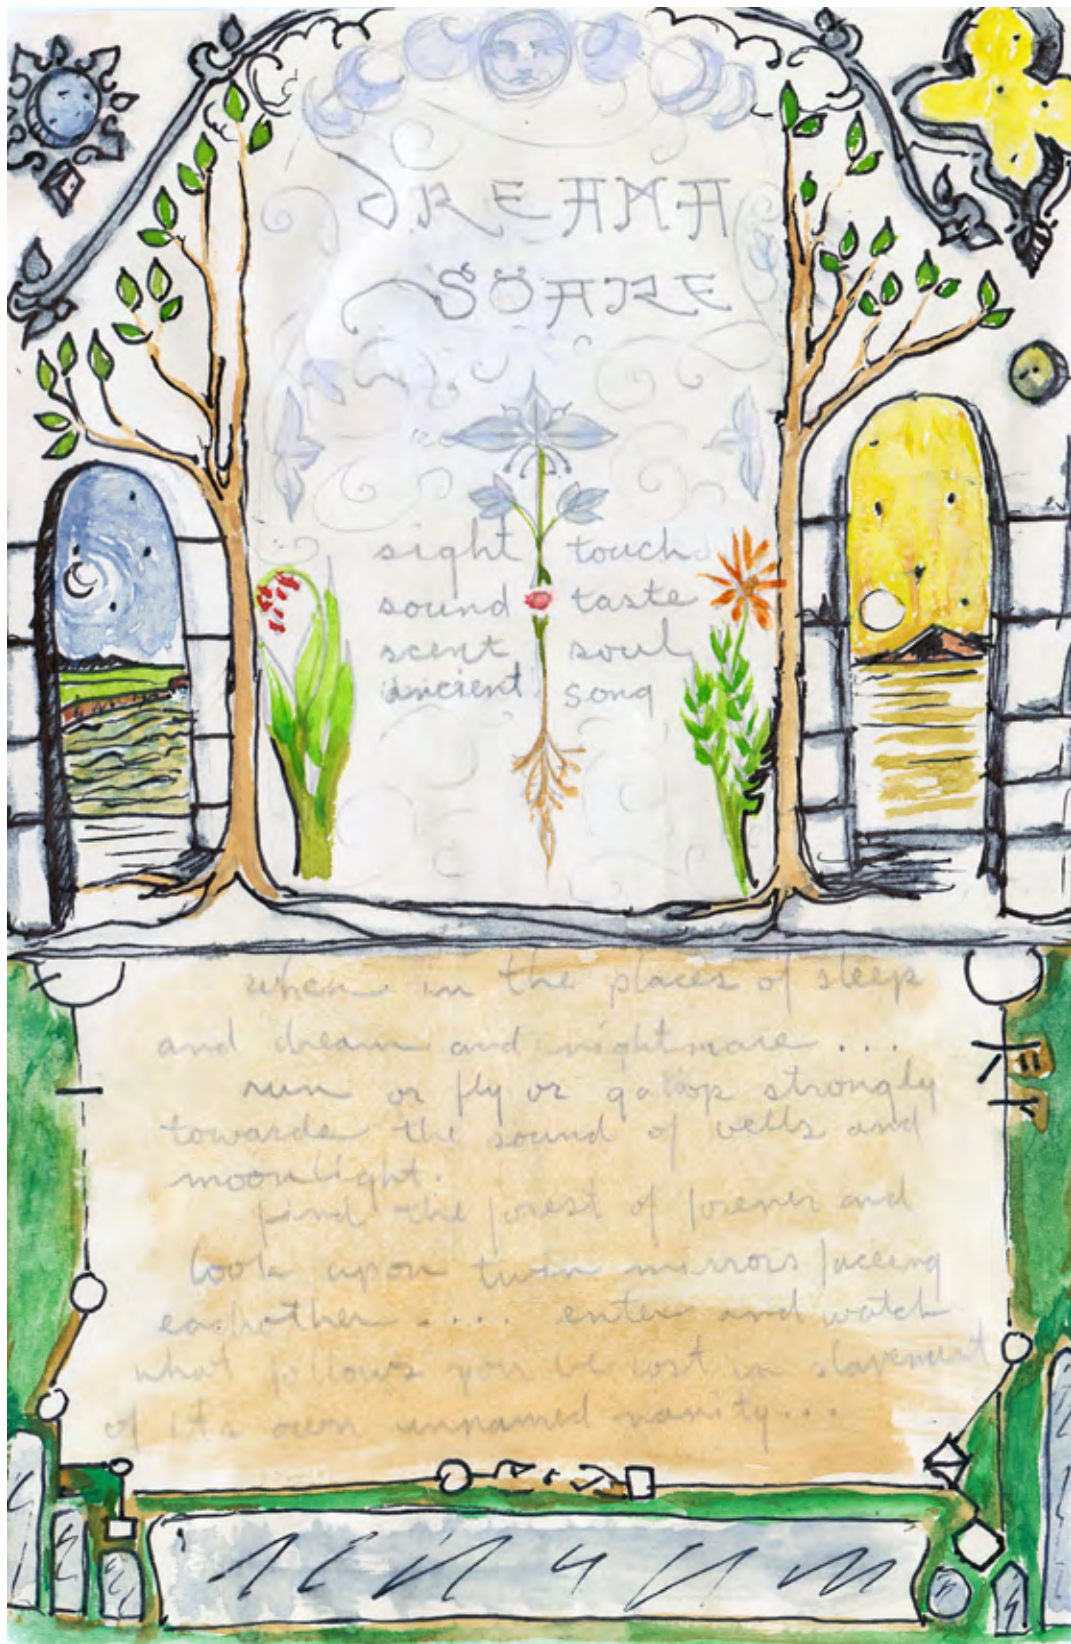 DREAMA
SÖARE
sight touch
sound taste
scent soul
ancient song
when in the places of sleep
and dream and nightmare ...
run or fly or galop strongly
towards the sound of wells and
moonlight.
find the forest of forever and
look upon twin mirrors faceing
eachother .... enter and watch
what follows you be lost in
of its own unnamed vanity...